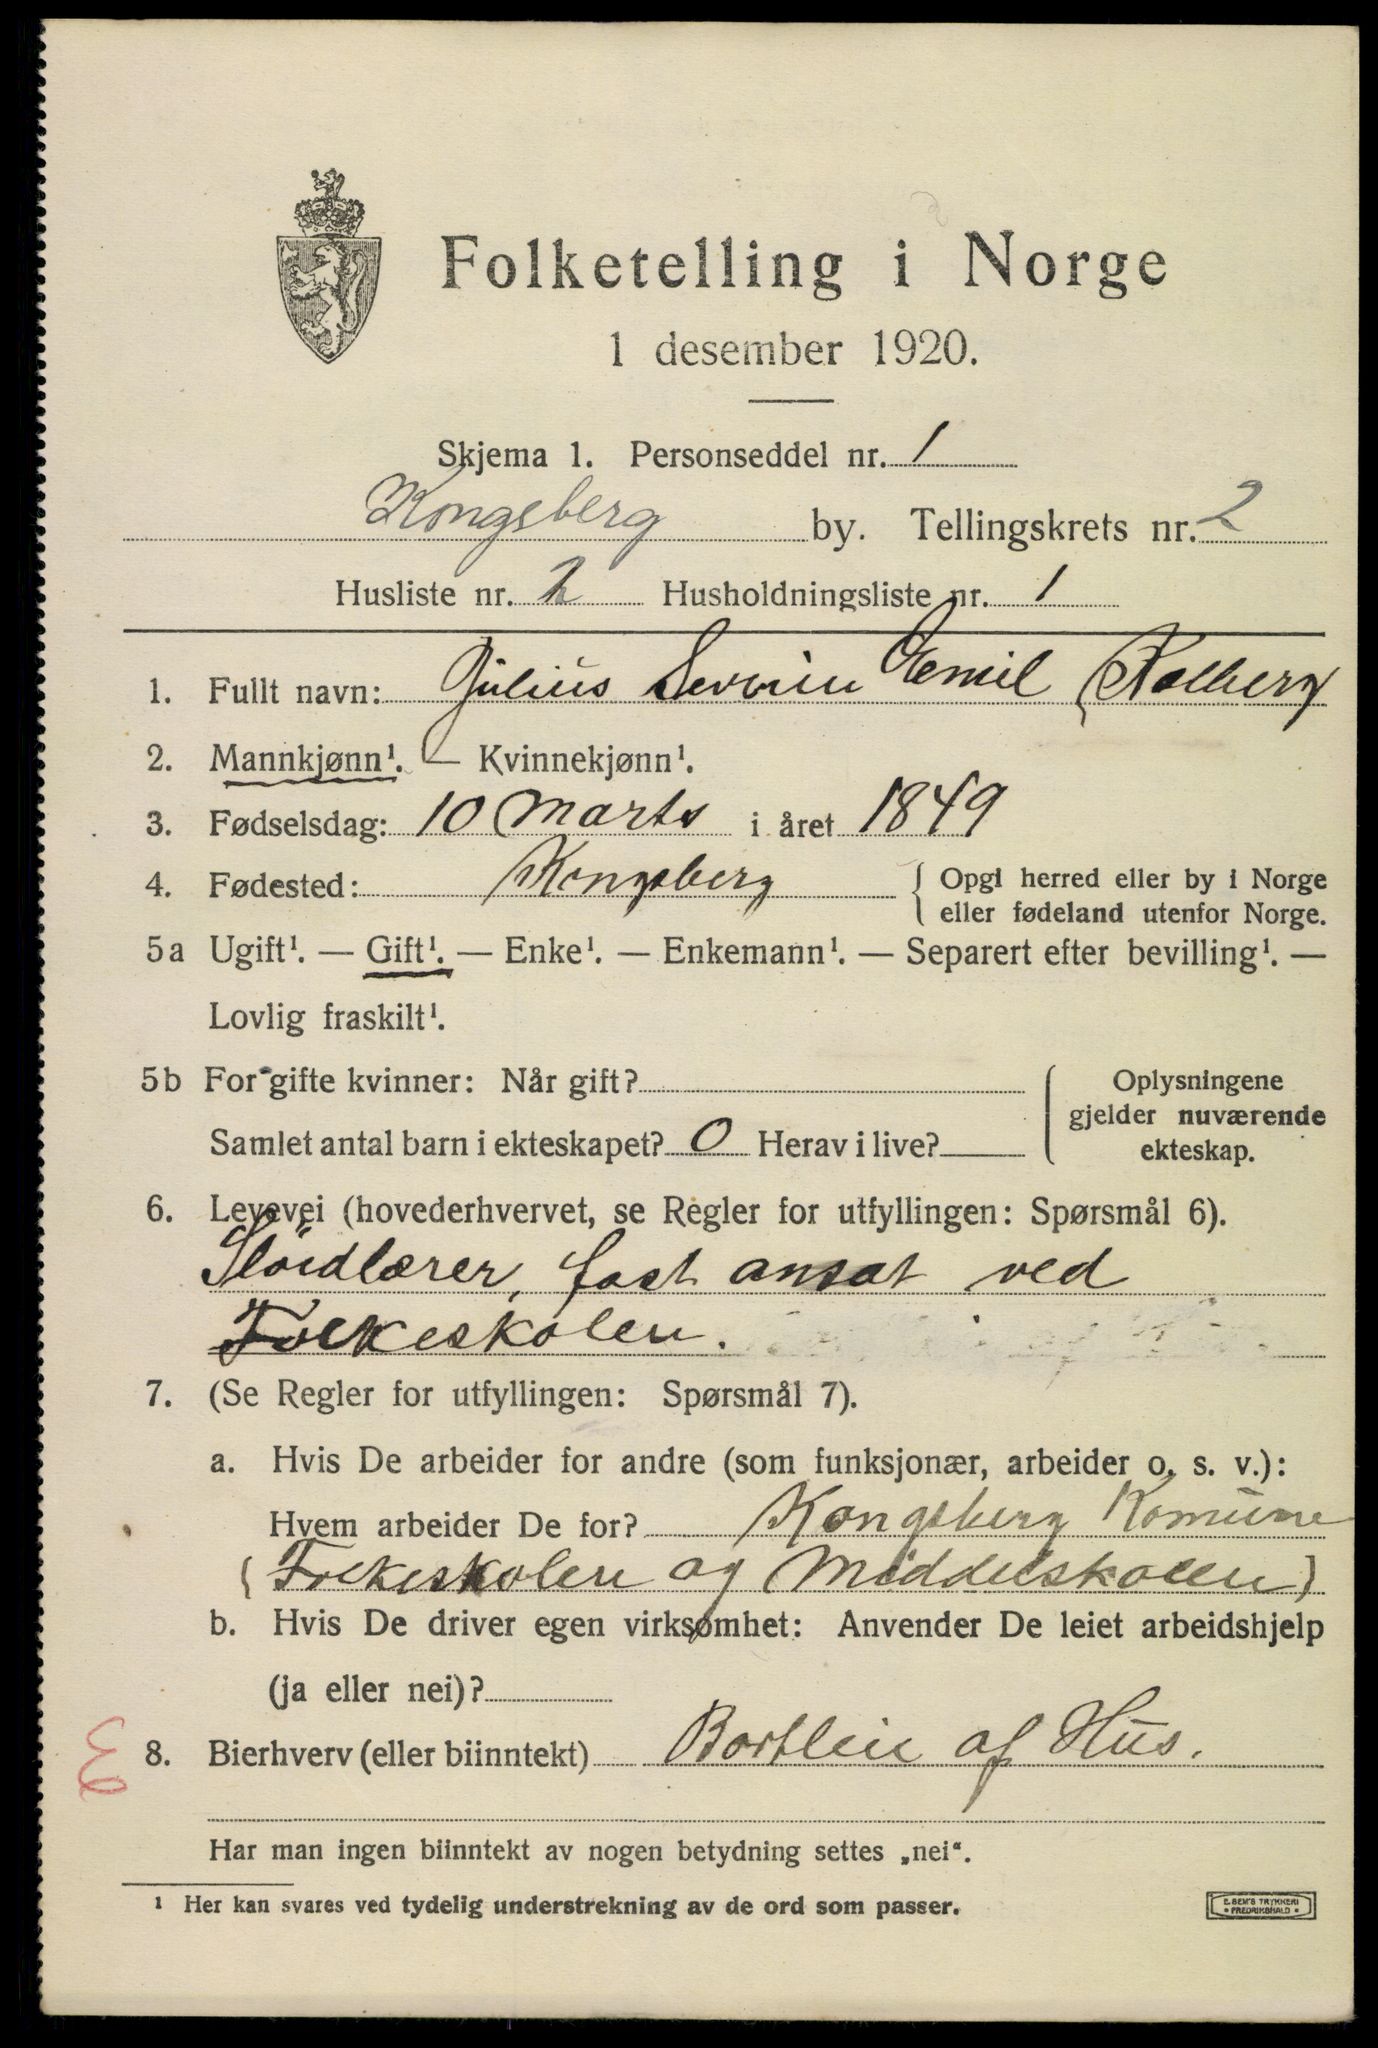 Folketelling i Norge
1 desember 1920.
Skjema 1. Personseddel nr. 1
Kongsberg by. Tellingskrets nr. 2
Husliste nr. 2 Husholdningsliste nr. 1
1. Fullt navn: Julius Severin Emil
2. Mannkjønn¹. — Kvinnekjønn¹.
3. Fødselsdag: 10 Marts i året 1849
4. Fødested: Kongsberg { Opgi herred eller by i Norge
eller fødeland utenfor Norge.
5a Ugift¹. — Gift¹. — Enke¹. — Enkemann¹. — Separert efter bevilling¹. —
Lovlig fraskilt¹.
5b For gifte kvinner: Når gift?
Samlet antal barn i ekteskapet? 0 Herav i live?
Oplysningene
gjelder nuværende
ekteskap.
6. Levevei (hovederhvervet, se Regler for utfyllingen: Spørsmål 6).
Slöidlærer, fast ansat ved
Folkeskolen.
7. (Se Regler for utfyllingen: Spørsmål 7).
a. Hvis De arbeider for andre (som funksjonær, arbeider o. s. v.):
Hvem arbeider De for? Kongsberg Komune
(Folkeskolen og Middelskolen)
b. Hvis De driver egen virksomhet: Anvender De leiet arbeidshjelp
(ja eller nei)?
8. Bierhverv (eller biinntekt) Bortleie af Hus.
Har man ingen biinntekt av nogen betydning settes „nei“.
¹ Her kan svares ved tydelig understrekning av de ord som passer.
E. SEM'S TRYKKERI
FREDRIKSHALD